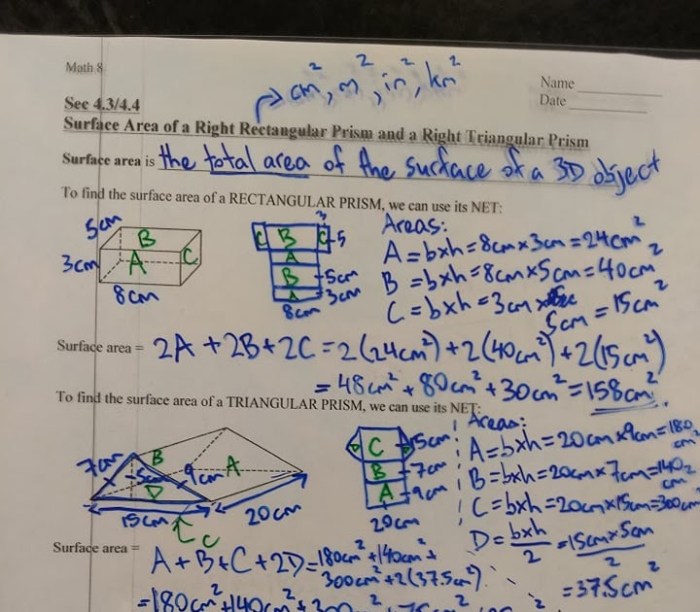 Math 8
cm², m², in², km²
Name
Date
Sec 4.3/4.4
Surface Area of a Right Rectangular Prism and a Right Triangular Prism
Surface area is the total area of the surface of a 3D object
To find the surface area of a RECTANGULAR PRISM, we can use its NET:
5cm
B
3cm
A
C
8cm
3
C B C 5
A
B 5cm
A 3cm
8cm
Areas:
A = b×h = 8cm × 3cm = 24cm²
B = b×h = 8cm × 5cm = 40cm²
C = b×h = 3cm ×
5cm = 15cm²
Surface area = 2A + 2B + 2C = 2(24cm²) + 2(40cm²) + 2(15cm²)
= 48cm² + 80cm² + 30cm² = 158cm².
To find the surface area of a TRIANGULAR PRISM, we can use its NET:
7cm
B
5cm
9cm
A
D
15cm
C
20cm
C 15cm
B 7cm
A 9cm
20cm
Areas:
A = b×h = 20cm × 9cm = 180cm²
B = b×h = 20cm × 7cm = 140cm²
C = b×h = 20cm × 15cm = 300cm²
D = b×h/2 = 15cm × 5cm/2
= 37.5cm²
Surface area = A + B + C + 2D = 180cm² + 140cm² +
300cm² + 2(37.5cm²)
= 180cm² + 140cm² +